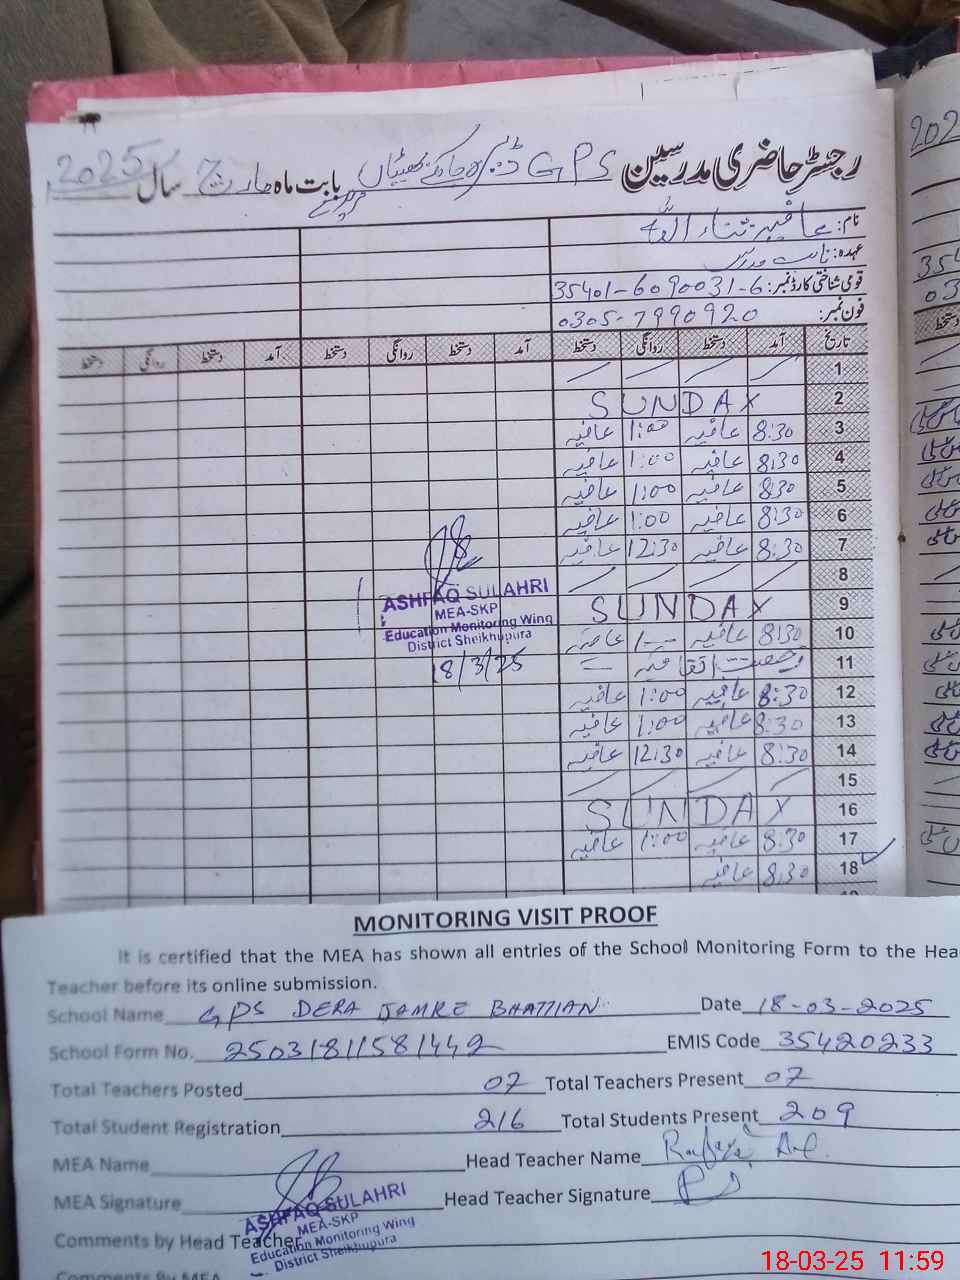 رجسٹر حاضری مدرسین GPS ڈیرہ جامکے بھٹیاں بابت ماہ مارچ سال 2025
نام: عافیہ ثناء اللہ
عہدہ: نائب مدرس
قومی شناختی کارڈ نمبر: 35401-6090031-6
فون نمبر: 0305-7990920
تاریخ آمد دستخط روانگی دستخط آمد دستخط روانگی دستخط آمد دستخط روانگی دستخط
1
2 SUNDAY
3 8:30 عافیہ 1:00 عافیہ
4 8:30 عافیہ 1:00 عافیہ
5 8:30 عافیہ 1:00 عافیہ
6 8:30 عافیہ 1:00 عافیہ
7 8:30 عافیہ 12:30 عافیہ
8
9 SUNDAY
10 8:30 عافیہ 1:00 عافیہ
11 رخصت اتفاقیہ
12 8:30 عافیہ 1:00 عافیہ
13 8:30 عافیہ 1:00 عافیہ
14 8:30 عافیہ 12:30 عافیہ
15
16 SUNDAY
17 8:30 عافیہ 1:00 عافیہ
18 8:30 عافیہ
ASHFAQ SULAHRI
MEA-SKP
Education Monitoring Wing
District Sheikhupura
18/3/25
MONITORING VISIT PROOF
It is certified that the MEA has shown all entries of the School Monitoring Form to the Hea
Teacher before its online submission.
School Name GPS DERA JAMKE BHATTIAN Date 18-03-2025
School Form No. 25031811581442 EMIS Code 35420233
Total Teachers Posted 07 Total Teachers Present 07
Total Student Registration 216 Total Students Present 209
MEA Name Head Teacher Name
MEA Signature Head Teacher Signature
ASHFAQ SULAHRI
MEA-SKP
Education Monitoring Wing
District Sheikhupura
Comments by Head Teacher
Comments By MEA
18-03-25 11:59